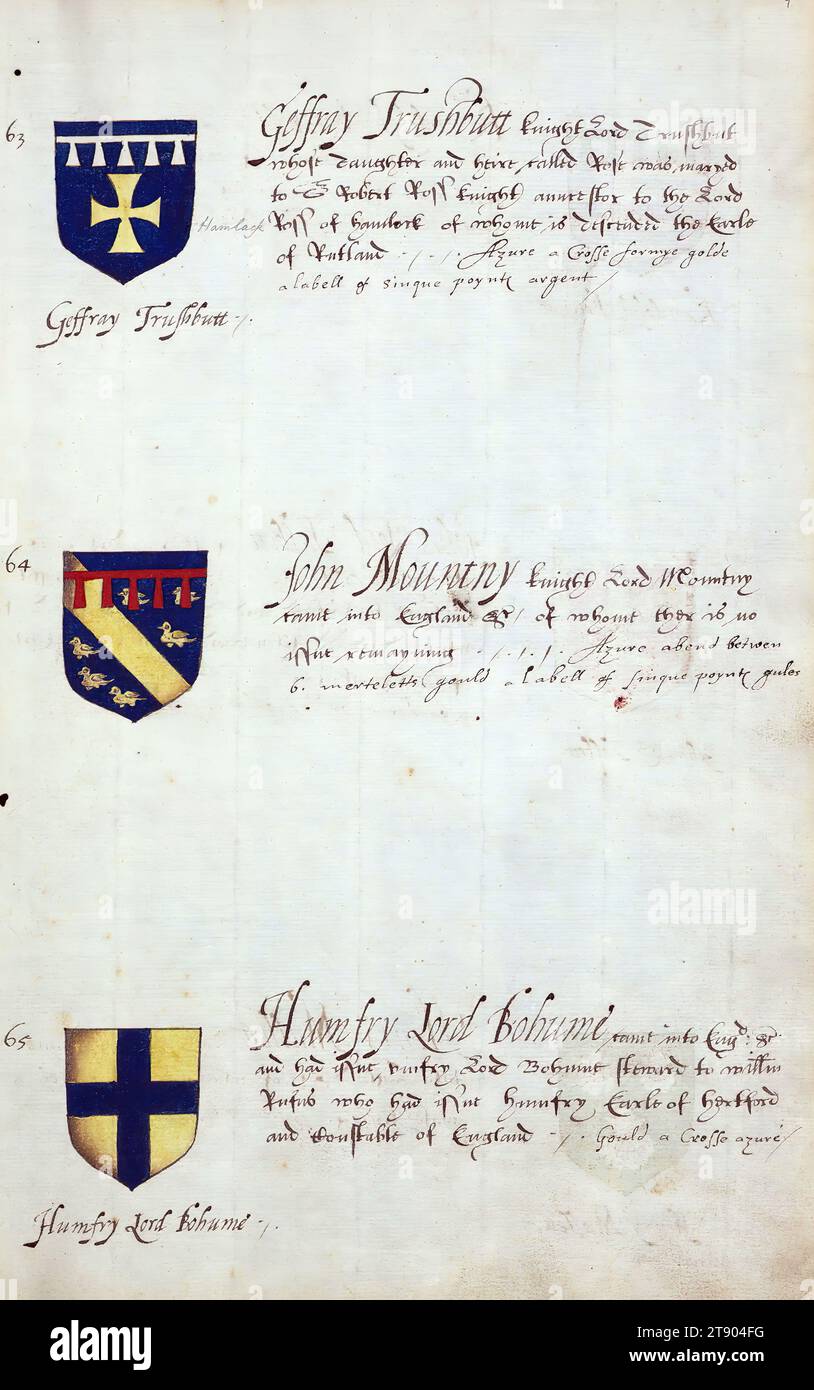 63
Geffray Trushbutt knight Lord Trushbut
whose daughter and heire, called Rose was maryed
to Sr Robert Ross knight auncestor to the Lord
Hamlack
Ross of hamlock of whome is descended the Earle
of Rutland Azure a Crosse formye golde
a labell of sinque poynts argent
Geffray Trushbutt
64
John Mountny knight Lord Mountny
came into England &c of whome ther is no
issue remayning Azure a bend betwen
6. merteletts gould a labell of sinque poynts gules
65
Humfry Lord Bohume came into Engd: &c
and had issue, umfry Lord Bohume steward to willm
Rufus who had issue humfry Earle of hertford
and Constable of England Gould a Crosse azure
Humfry Lord Bohume
alamy
alamy
alamy
alamy
Image ID: 2T904FG
www.alamy.com